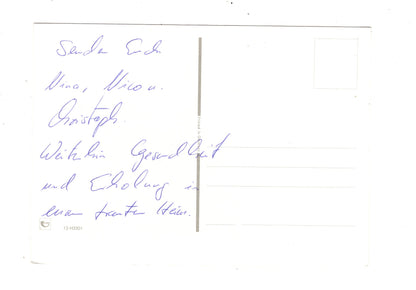 Senden Euch
Nina, Nico u.
Christoph.
Weiterhin Gesundheit
und Erholung in
eurem trauten Heim.